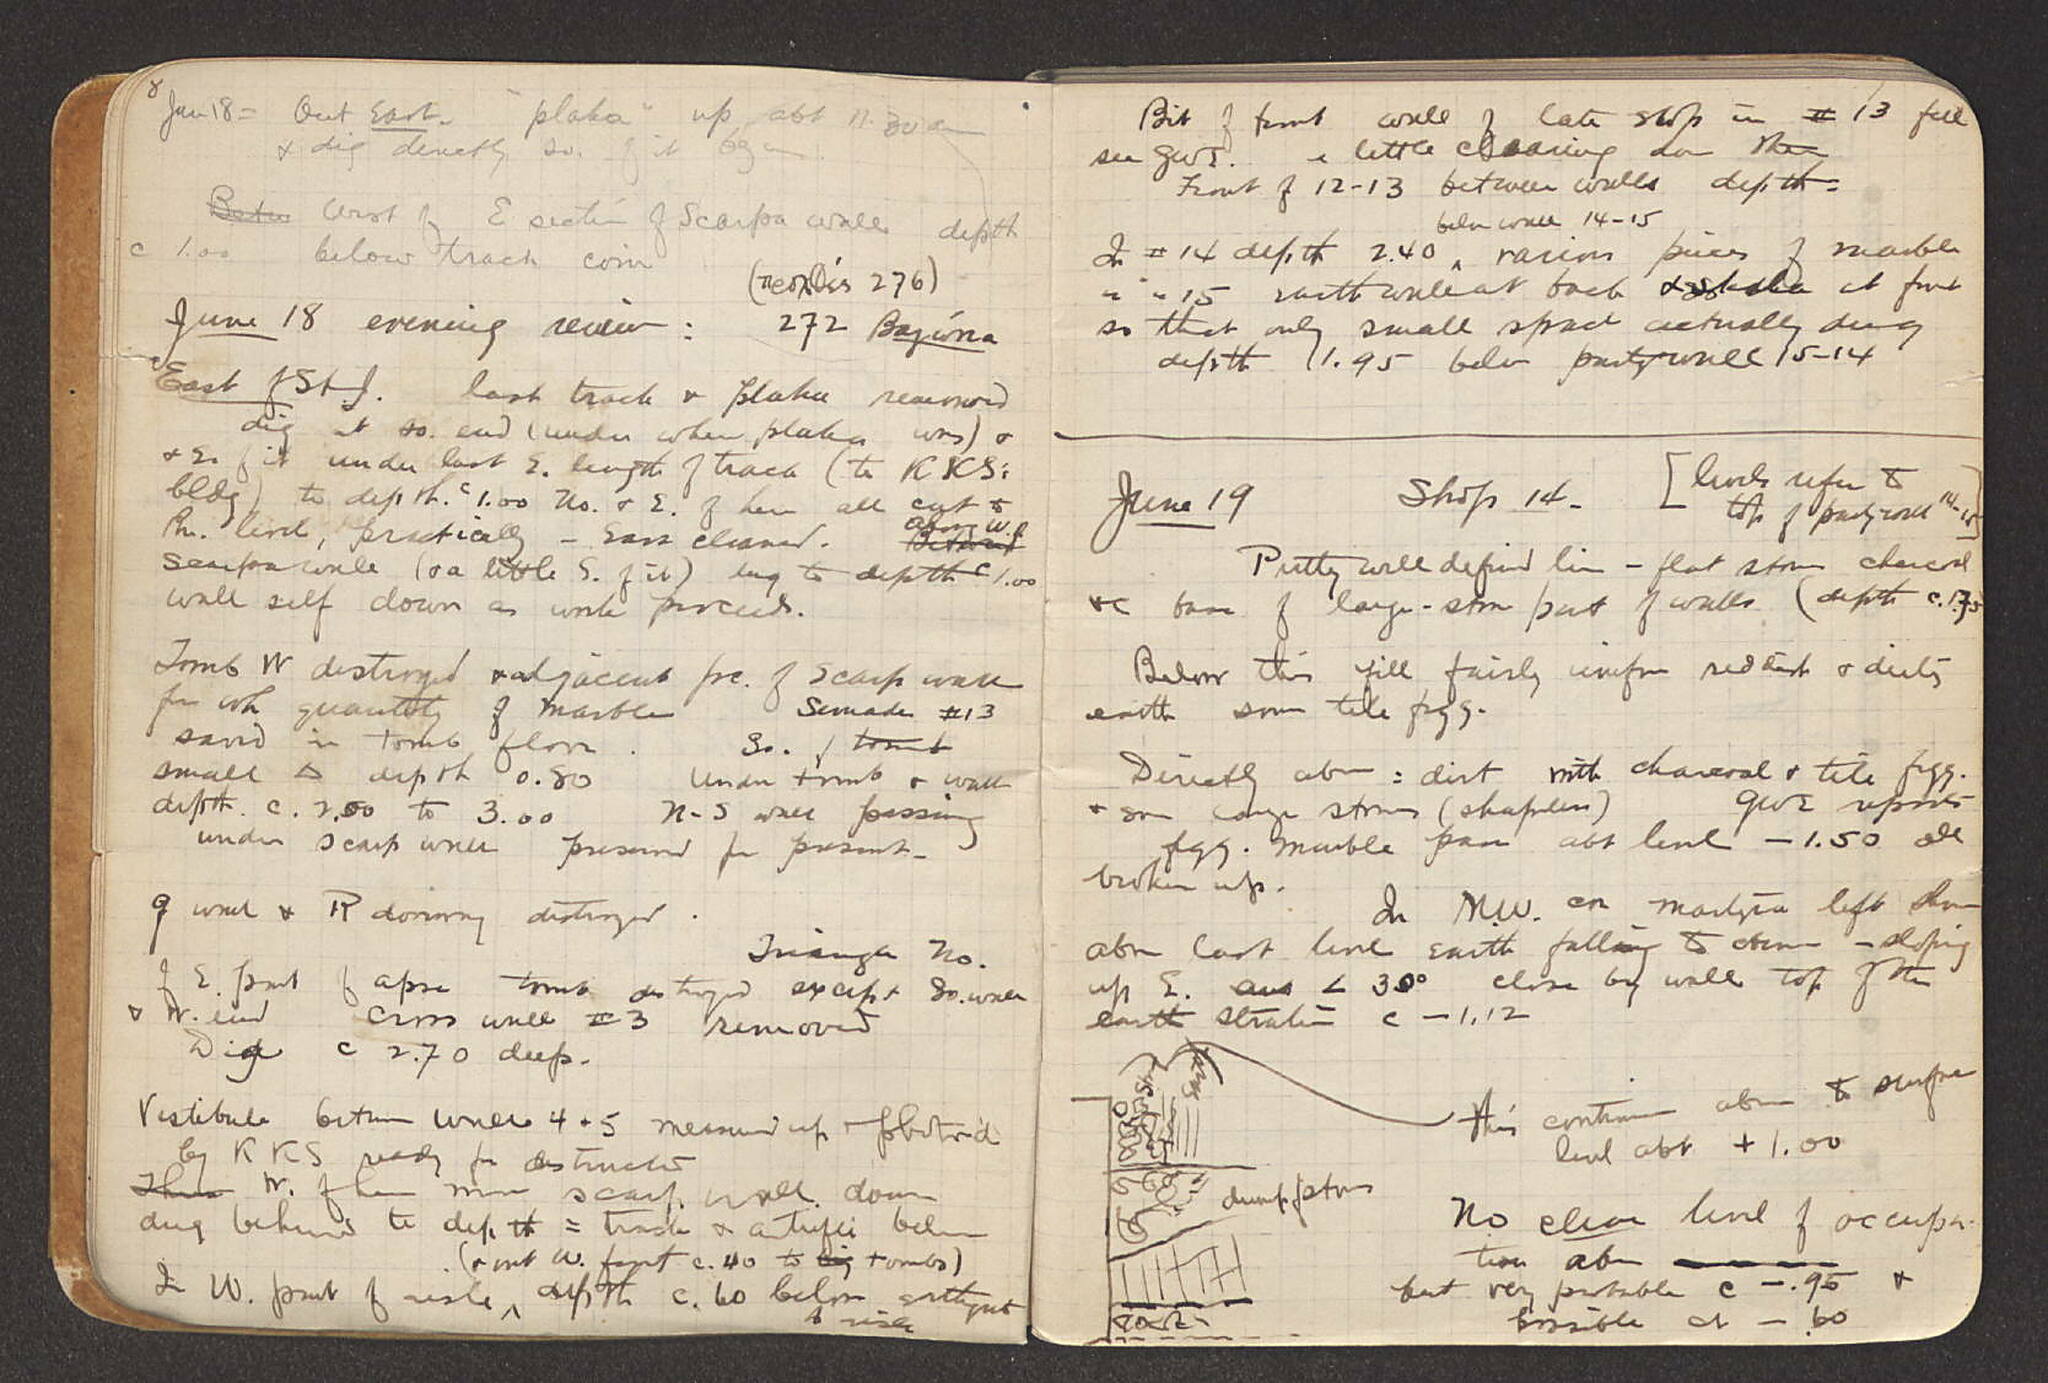 8
Jun 18 = Out East. "plaka" up abt 11.30 am
& dig directly so. of it began
Betw. West of E section of Scarpa wall depth
c 1.00 below track coin
(περλiς 276)
June 18 evening review : 272
East of St. J. last track & plaka removed
dig at so. end (under where plaka was) &
& E. of it under last E. length of track (to KKS:
bldg) to depth c 1.00 No. & E. of here all cut to
Rn. level, practically – cleaned. Between above W. of
scarpa wall (& a little S. of it) dug to depth c 1.00
wall self down as work proceeds.
Tomb W destroyed & adjacent pc. of scarp wall
fr wh quantity of marble Semades #13
saved in tomb floor. So. of tomb
small Δ depth 0.80 Under tomb & wall
depth c. 2.50 to 3.00 N-S wall passing
under scarp wall preserved for present.
9 wall & R doorway destroyed.
Triangle No.
of E. part of apse tomb destroyed except So. wall
& W. end Cross wall #3 removed
Dig c 2.70 deep.
Vestibule between walls 4 + 5 measured up & photo'd
by KKS ready for destruction
There W. of here more scarp. wall down
dug behind to depth = track & below
(& out W. front c. 40 to big tombs)
In W. part of aisle, ^ depth c. 60 below
to aisle
Bit of front wall of late shop in #13 fell
see GWE. a little cleaning done there
Front of 12-13 between walls depth =
below wall 14-15
In #14 depth 2.40 ^ various pieces of marble
" " 15 earth wall at back & at front
so that only small space actually dug
depth 1.95 below party wall 15-14
June 19 Shop 14. [levels refer to
top of party wall 14-15]
Pretty well defined line – flat stones charcoal
&c base of large-stone part of walls (depth c. 1.75
Below this fill fairly uniform reddish & dirty
earth some tile fgg.
Directly above = dirt with charcoal & tile fgg.
& some large stones (shapeless) GWE reports
fgg. marble pave abt level – 1.50 all
broken up.
In N.W. cor martyra left shows
above last level earth falling to corner – sloping
up E. < 30° close by wall top of the
earth stratum c – 1.12
this continues above to surface
level abt + 1.00
dump of stones
No clear level of occupa-
tion above
but very probable c – .95 &
possible at – .60